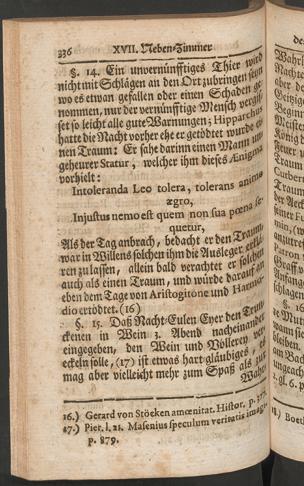 336 XVII. Neben-Zimmer
§. 14. Ein unvernünfftiges Thier wird
nicht mit Schlägen an den Ort zubringen seyn
wo es etwan gefallen oder einen Schaden ge-
nommen, nur der vernünfftige Mensch vergis-
set so leicht alle gute Warnungen; Hipparchus
hatte die Nacht vorher ehe er getödtet wurde ei-
nen Traum: Er sahe darinn einen Mann un-
geheurer Statur, welcher ihm dieses Ænigma
vorhielt:
Intoleranda Leo tolera, tolerans animo
ægro,
Injustus nemo est quem non sua pœna se-
quetur,
Als der Tag anbrach, bedacht er den Traum,
war in Willens solchen ihm die Ausleger erklä-
ren zu lassen, allein bald verachtet er solchen
auch als einen Traum, und wurde darauf an
eben dem Tage von Aristogitone und Harmo-
dio ertödtet. (16)
§. 15. Daß Nacht-Eulen Eyer den Trun-
ckenen in Wein 3. Abend nacheinander
eingegeben, den Wein und Völlerey ver-
eckeln solle, (17) ist etwas hart gläubiges,
mag aber vielleicht mehr zum Spaß als zur
Wahr-
16.) Gerard von Stöcken amœnitat. Histor. p.
17.) Pier. l. 21. Masenius speculum veritatis imag.
p. 879.